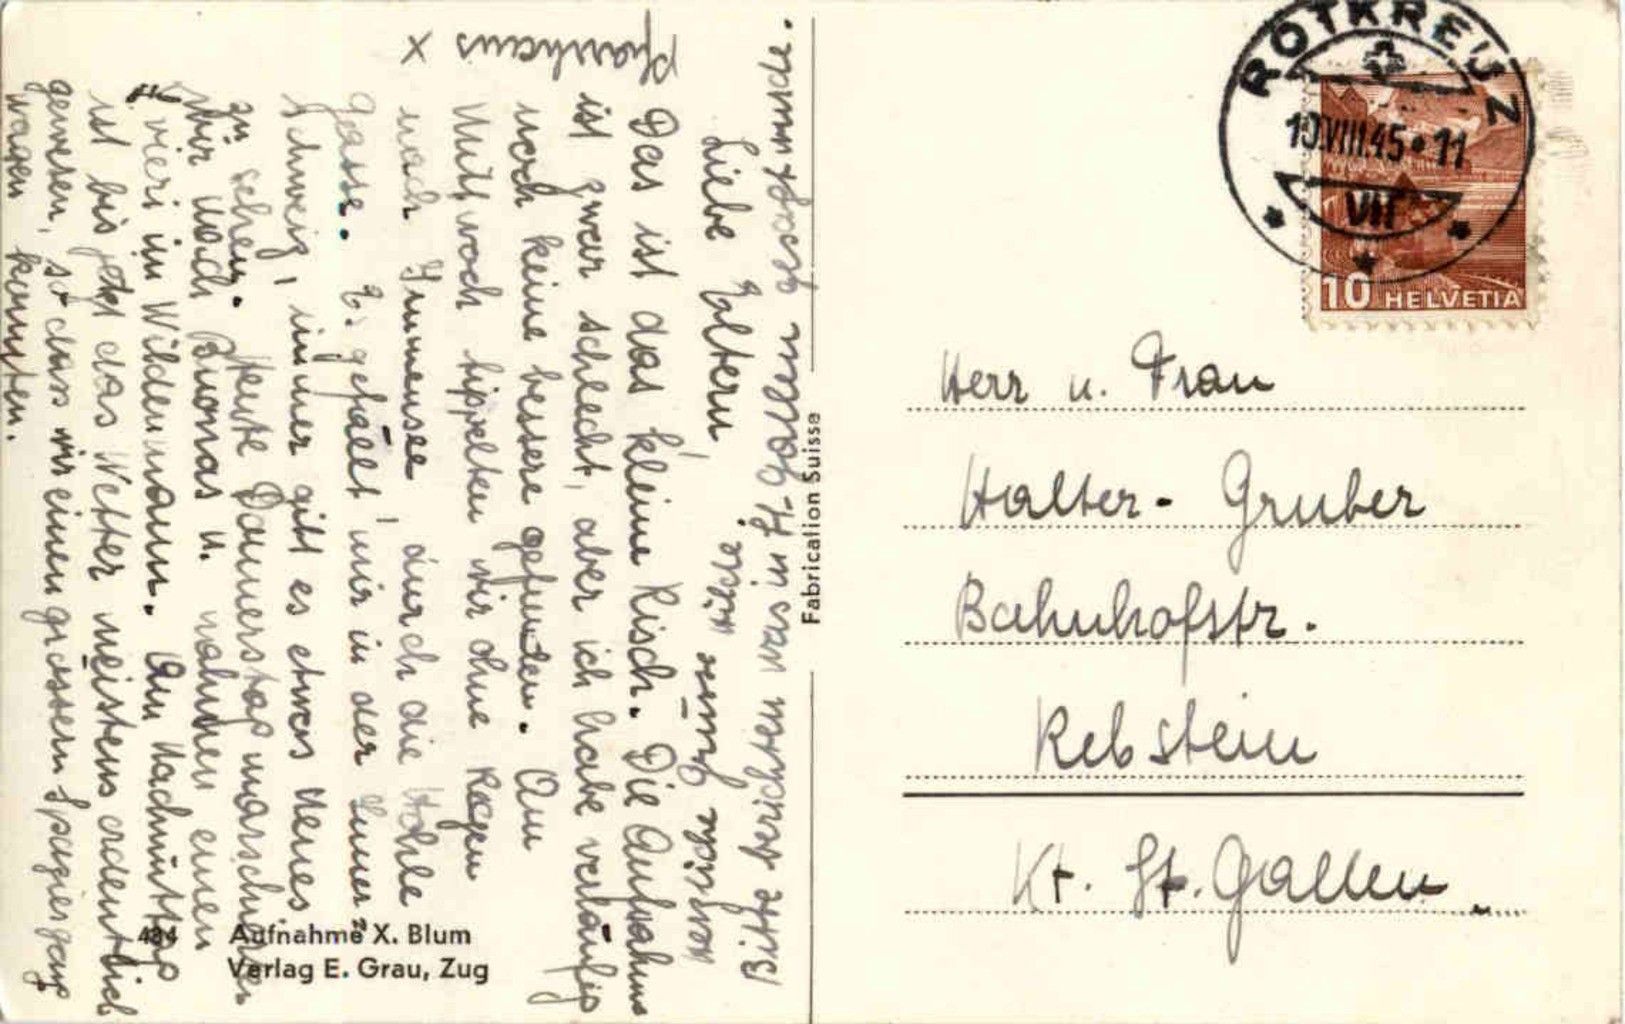 Liebe Eltern,
Das ist das kleine Risch. Die Aufnahme
ist zwar schlecht, aber ich habe vorläufig
noch keine bessere gefunden. Am
Mittwoch tippelten wir ohne Regen
nach Immensee, durch die Hohle
Gasse. Es gefällt mir in der Inner-
Schweiz, immer gibt es etwas Neues
zu sehen. Heute Donnerstag marschierten
wir nach Buonas u. nahmen einen
z'vieri im Wildenmann. Am Nachmittag
ist bis jetzt das Wetter meistens ordentlich
gewesen, so dass wir einen grössern Spaziergang
wagen konnten.
x Pfarrhaus
Herzliche Grüsse
Bitte berichten was in St. Gallen gesagt wurde.
Fabrication Suisse
484 Aufnahme X. Blum
Verlag E. Grau, Zug
ROTKREUZ
10.VIII.45•11
VII
10 HELVETIA
Herr u. Frau
Halter-Gruber
Bahnhofstr.
Rebstein
Kt. St. Gallen